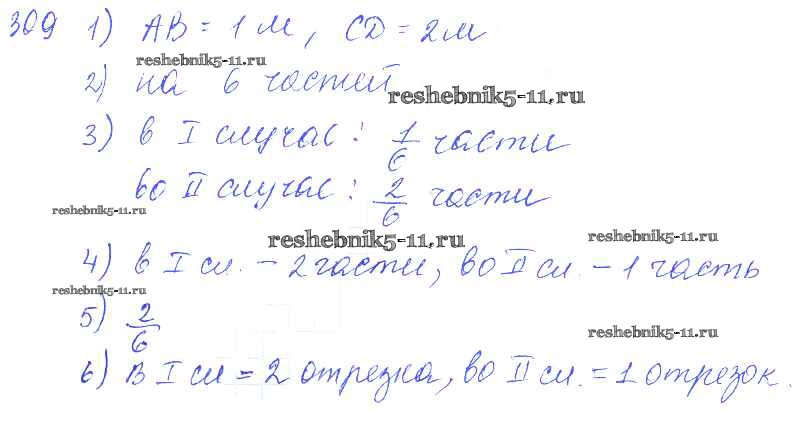 309 1) AB = 1 м, CD = 2 м
reshebnik5-11.ru
2) на 6 частей
reshebnik5-11.ru
3) в I случае: 1/6 части
во II случае: 2/6 части
reshebnik5-11.ru
reshebnik5-11.ru
reshebnik5-11.ru
4) в I сл. - 2 части, во II сл. - 1 часть
reshebnik5-11.ru
5) 2/6
reshebnik5-11.ru
6) в I сл = 2 отрезка, во II сл. = 1 отрезок.